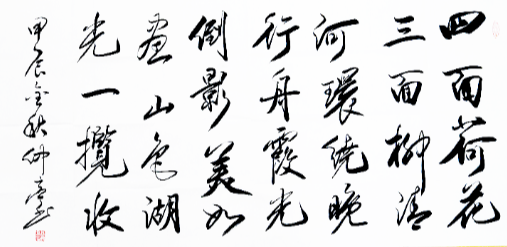 四面荷花
三面柳清
河環绕晚
行舟霞光
倒影美如
画山色湖
光一攬收
甲辰金秋仲臺书